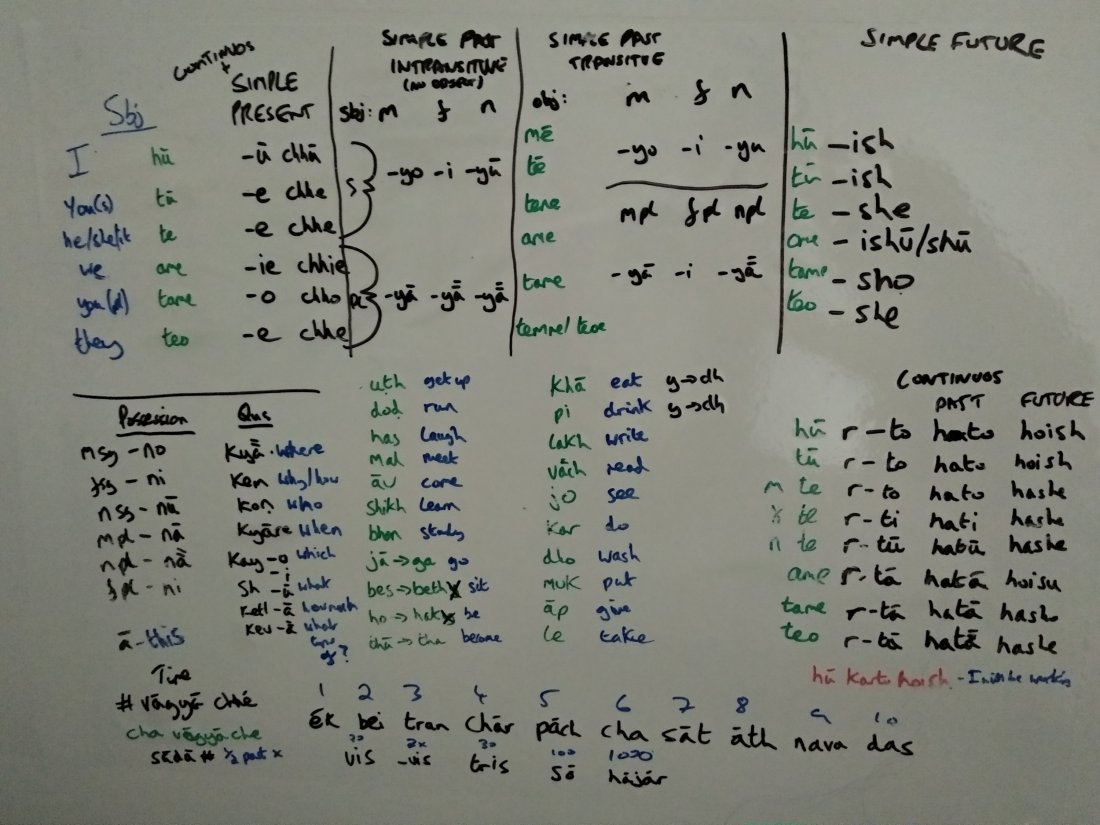 CONTINUOS + SIMPLE PRESENT
Sbj
I hū -ū chhū
you(s) tū -e chhe
he/she/it te -e chhe
we ame -ie chhie
you(pl) tame -o chho
they teo -e chhe
SIMPLE PAST
INTRANSITIVE
(NO OBJECT)
sbj: m f n
s -yo -i -yū
pl -yā -yā̃ -yā̃
SIMPLE PAST
TRANSITIVE
obj: m f n
mē -yo -i -yu
tē
tene mpl fpl npl
ame
tame -yā -i -yā̃
SIMPLE FUTURE
hū -ish
tū -ish
te -she
ame -ishū/shū
tame -sho
teo -she
Possession
msg -no
fsg -ni
nsg -nū
mpl -nā
npl -nā̃
fpl -ni
ā -this
Qus
Kyā̃ - where
Kem why/how
Koṇ who
Kyāre when
Kay -o which
-i
Sh -ū what
Ketl -ā how much
Kev -ā what
type
of?
uṭh get up
doḍ run
has laugh
mal meet
āv come
shikh learn
bhan study
jā → ga go
bes → beth sit
ho → hat be
thā → tha become
Khā eat y → dh
pi drink y → dh
lakh write
vā̃ch read
jo see
Kar do
dho wash
muk put
āp give
le take
CONTINUOS
PAST FUTURE
hū r -to hato hoish
tū r -to hato hoish
m te r -to hato hashe
f te r -ti hati hashe
n te r -tū hatū hashe
ame r -tā hatā hoisu
tame r -tā hatā hasho
teo r -tā hatā hashe
hū karto hoish - I will be working
Time
# vāgyā chhé
cha vāgyā che
sādā # ½ past x
1 2 3 4 5 6 7 8 9 10
ék bei tran chār pā̃ch cha sāt āth nava das
20 2x 30 100 1000
vis -vis tris sō hājār